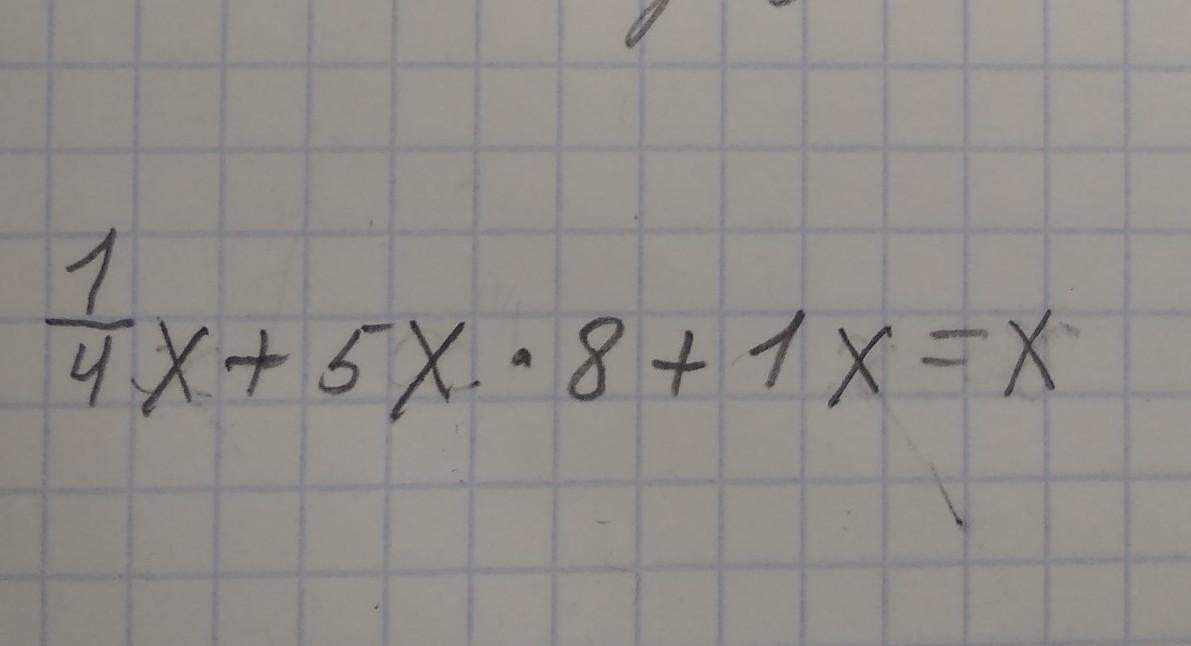 1/4 x + 5x · 8 + 1x = x